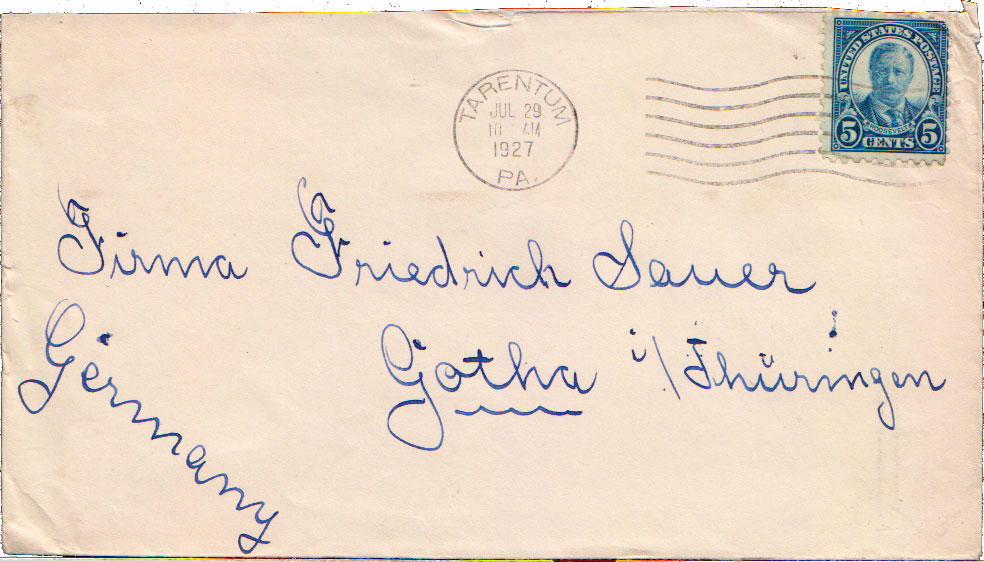 UNITED STATES POSTAGE
ROOSEVELT
5 CENTS 5
TARENTUM
JUL 29
10 AM
1927
PA.
Firma Friedrich Sauer
Gotha i/Thüringen
Germany